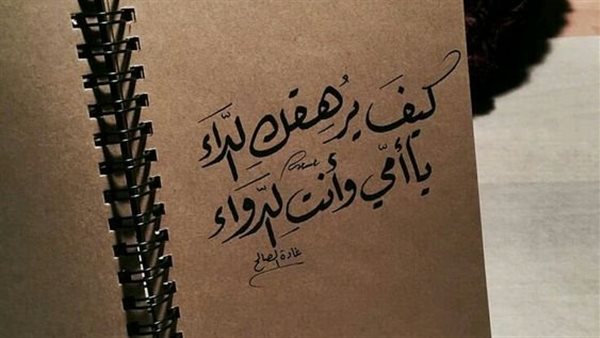 كيفَ يُرهِقكِ الدَّاءَ
يا أمّي وأنتِ الدَّوَاء
غادة الصالح